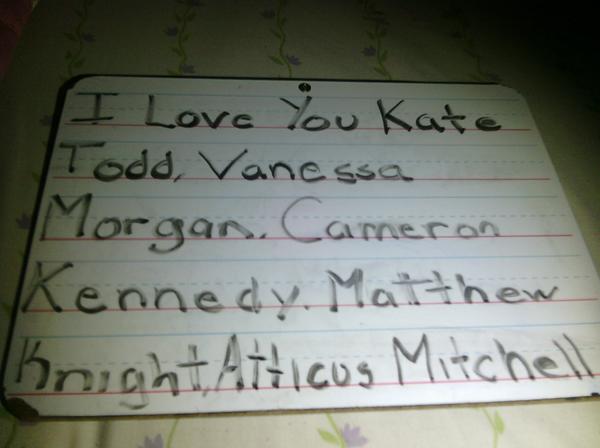 I Love You Kate
Todd, Vanessa
Morgan, Cameron
Kennedy, Matthew
Knight, Atticus Mitchell